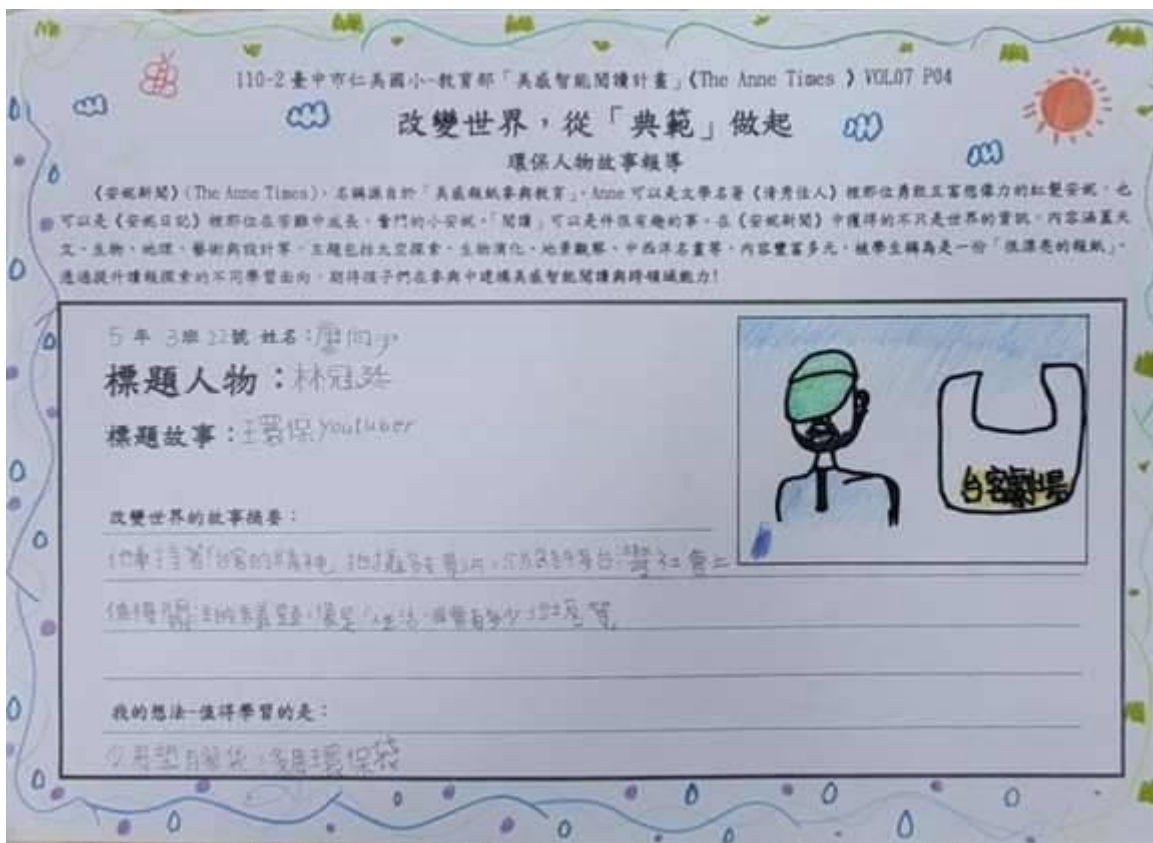 110-2 臺中市仁美國小-教育部「美感智能閱讀計畫」《The Anne Times 》VOL07 P04
改變世界，從「典範」做起
環保人物故事報導
《安妮新聞》(The Anne Times)，名稱源自於「美感報紙參與教育」，Anne 可以是文學名著《清秀佳人》裡那位勇敢且富想像力的紅髮安妮，也
可以是《安妮日記》裡那位在苦難中成長、奮鬥的小安妮。「閱讀」可以是件很有趣的事，在《安妮新聞》中獲得的不只是世界的資訊，內容涵蓋天
文、生物、地理、藝術與設計等，主題包括太空探索、生物演化、地景觀察、中西洋名畫等，內容豐富多元，被學生稱為是一份「很漂亮的報紙」。
透過提升讀報探索的不同學習面向，期待孩子們在參與中建構美感智能閱讀與跨領域能力！
5 年 3班 22號 姓名：
標題人物：林冠廷
標題故事：環保youtuber
台客劇場
改變世界的故事摘要：
他秉持著「台客的精神」拍攝許多影片，台灣社會上
值得關注的議題，像是「人生活
我的想法-值得學習的是：
少用塑膠袋，多用環保袋